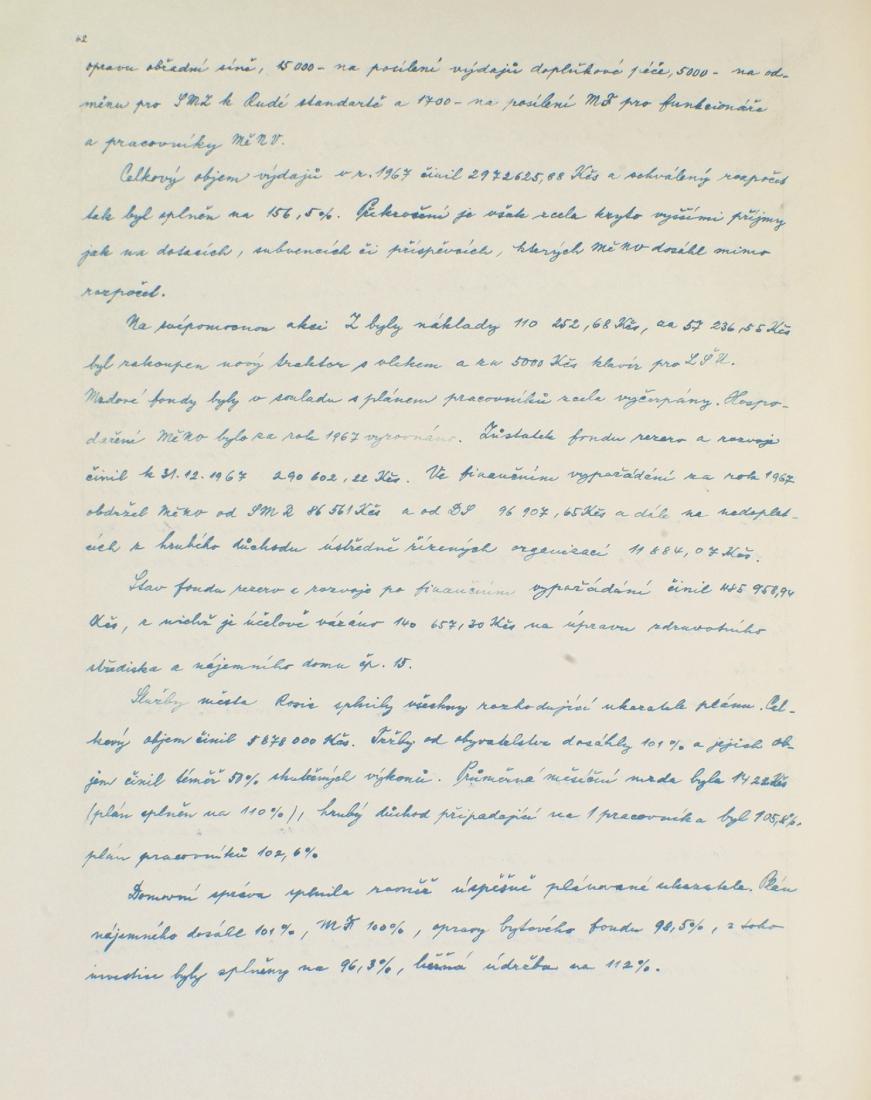 62
opravu obřadní síně, 15 000 - na posílení výdajů doplňkové péče, 5000 - na od-
měnu pro SMZ k Rudé standartě a 1700 - na posílení MF pro funkcionáře
a pracovníky MěNV.
Celkový objem výdajů v r. 1967 činil 2972625,88 Kčs a schválený rozpočet
tak byl splněn na 156,5%. Překročení je však zcela kryto vyššími příjmy
jak na dotacích, subvencích či příspěvcích, kterých MěNV dosáhl mimo
rozpočet.
Na svépomocnou akci Z byly náklady 110 252,68 Kčs, za 57 236,55 Kčs
byl zakoupen nový traktor s vlekem a za 5000 Kčs klavír pro LŠU.
Mzdové fondy byly v souladu s plánem pracovníků zcela vyčerpány. Hospo-
daření MěNV bylo za rok 1967 vyrovnáno. Zůstatek fondu rezerv a rozvoje
činil k 31.12.1967 290 602,22 Kčs. Ve finančním vypořádání za rok 1967
obdržel MěNV od SMR 86 561 Kčs a od DS 96 907,65 Kčs a dále na nedoplat-
cích z hrubého důchodu ústředně řízených organizací 11 884,07 Kčs.
Stav fondu rezerv a rozvoje po finančním vypořádání činil 485 958,94
Kčs, z nichž je účelově vázáno 140 657,30 Kčs na úpravu zdravotního
střediska a nájemního domu čp. 15.
Služby města Rosic splnily všechny rozhodující ukazatele plánu. Cel-
kový objem činil 5 878 000 Kčs. Tržby od obyvatelstva dosáhly 101% a jejich ob-
jem činil téměř 50% skutečných výkonů. Průměrná měsíční mzda byla 1422 Kčs
(plán splněn na 110%), hrubý důchod připadající na 1 pracovníka byl 105,8%,
plán pracovníků 102,6%
Domovní správa splnila rovněž úspěšně plánované ukazatele. Plán
nájemného dosáhl 101%, MF 100%, opravy bytového fondu 98,5%, z toho
investice byly splněny na 96,3%, běžná údržba na 112%.